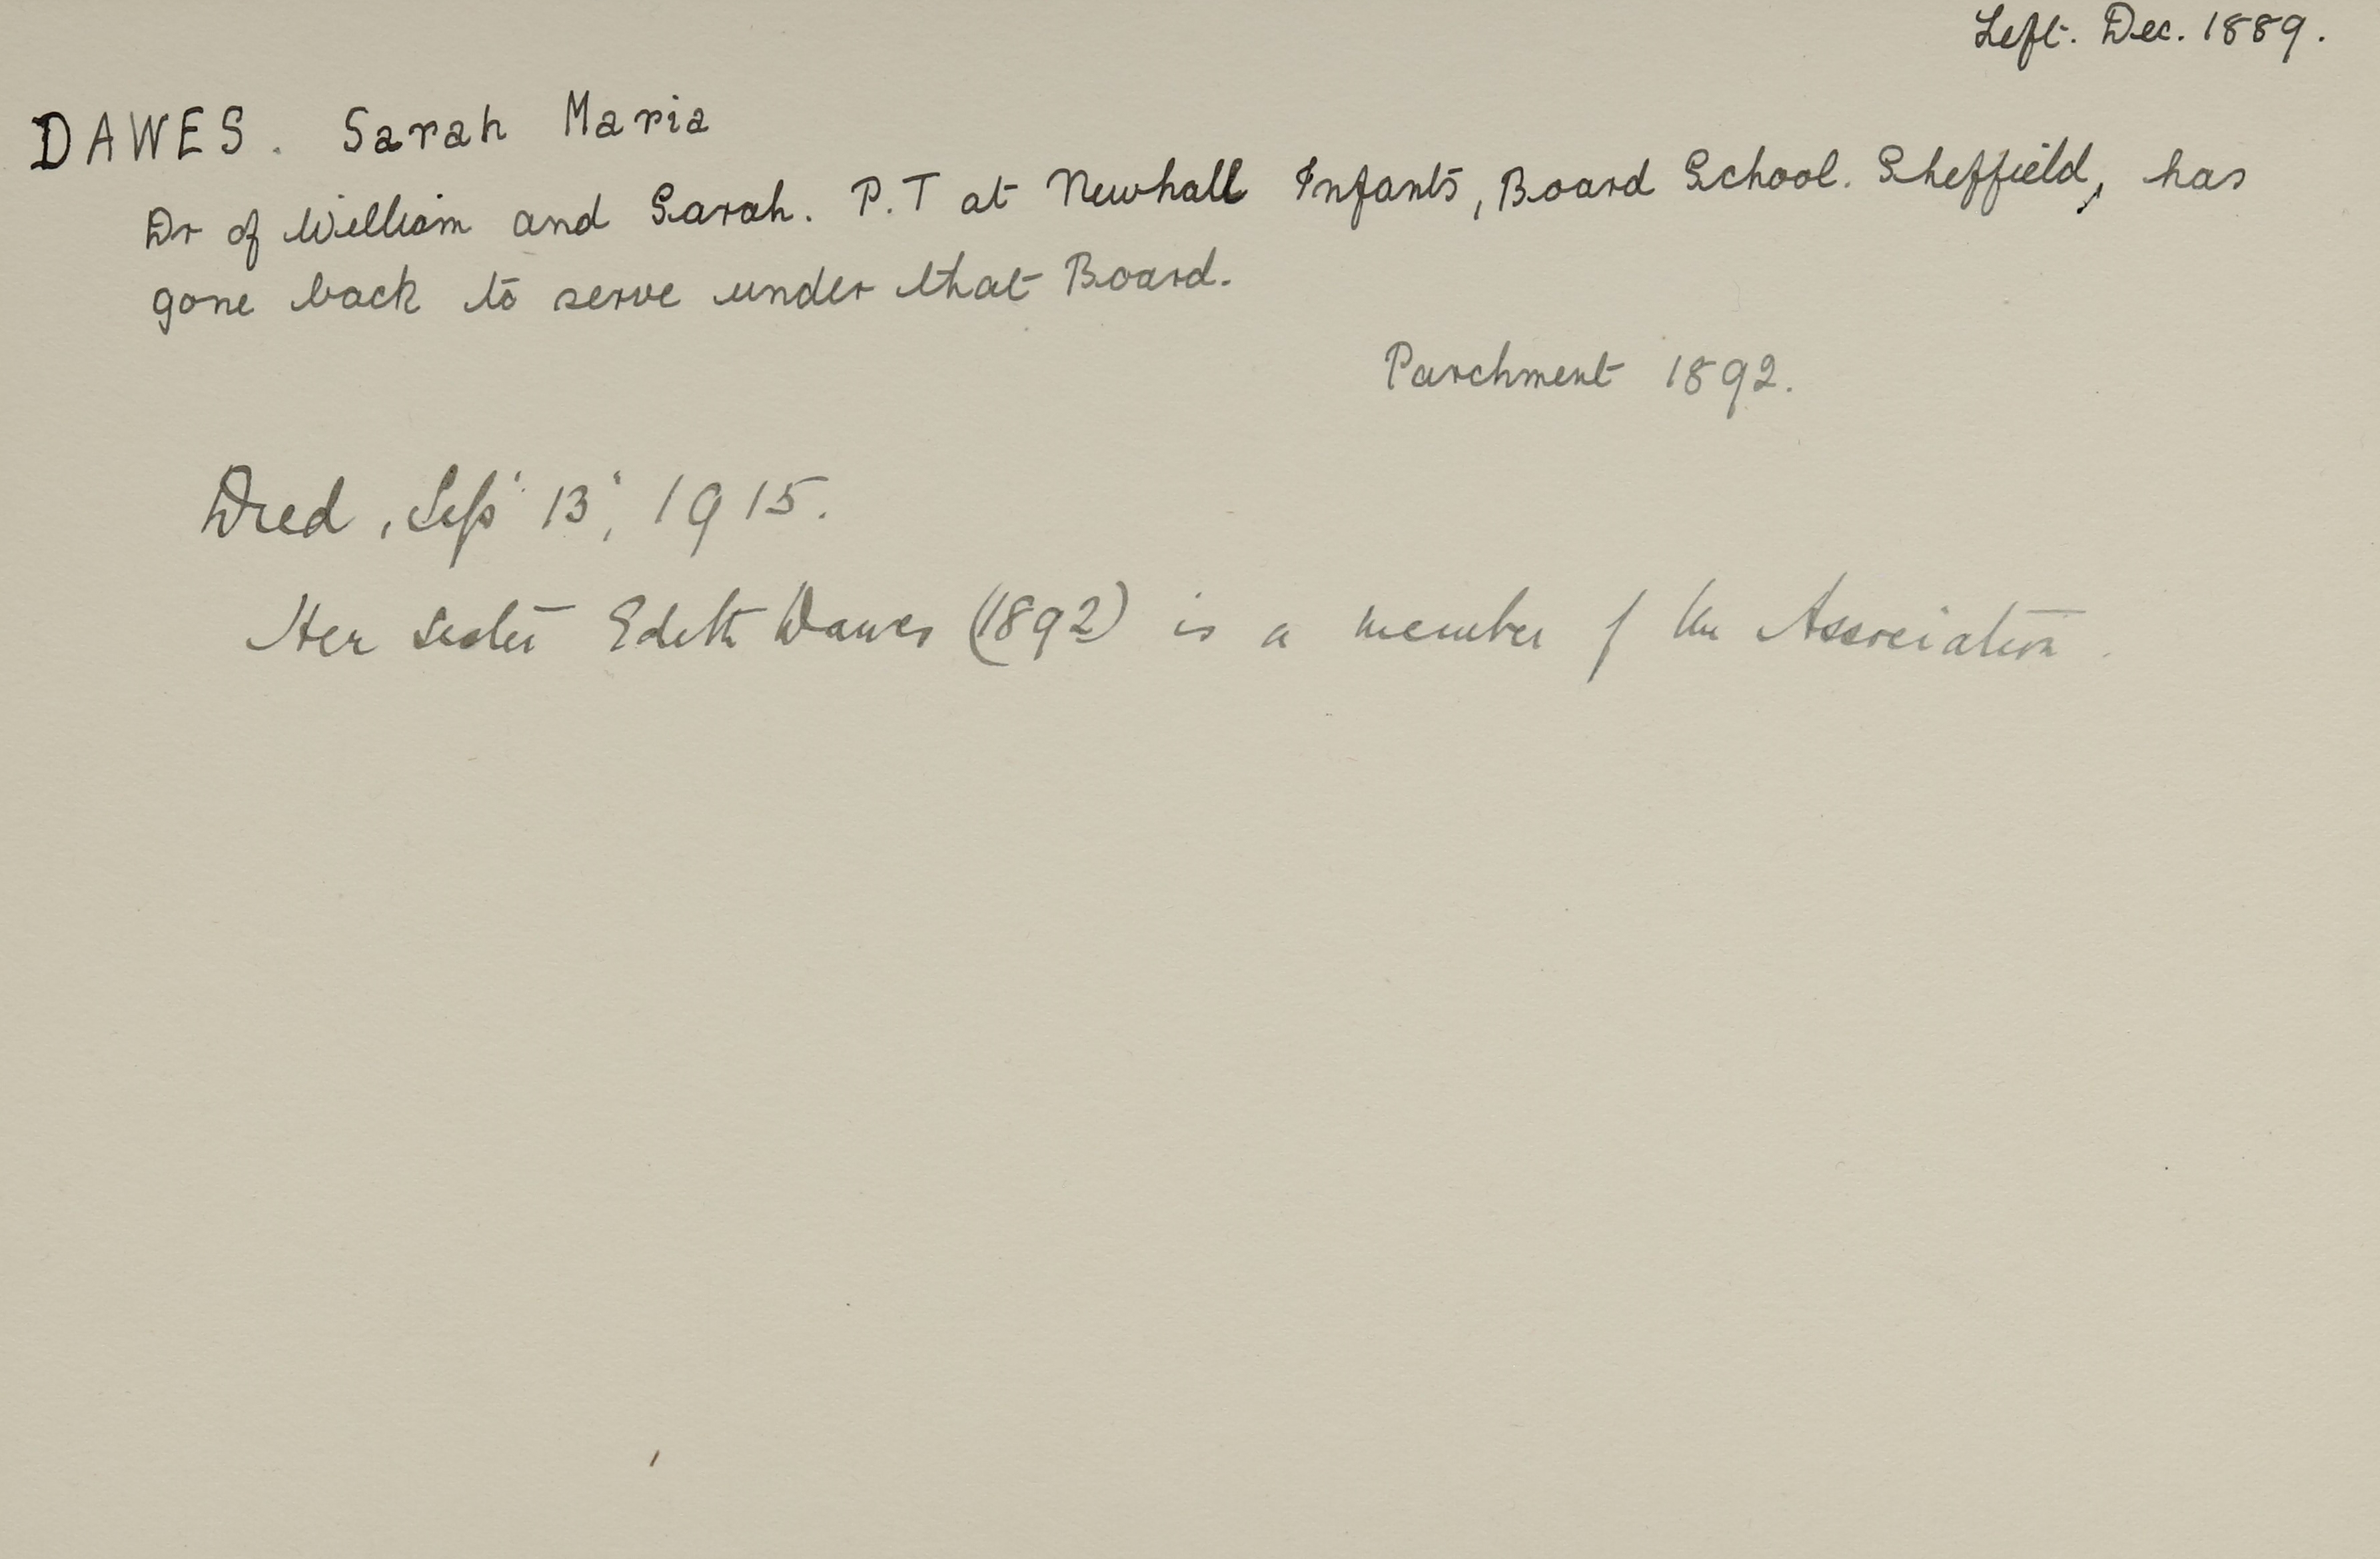 Left. Dec. 1889.
DAWES. Sarah Maria
Dr of William and Sarah. P.T at Newhall Infants, Board School. Sheffield, has
gone back to serve under that Board.
Parchment 1892.
Died, Sep 13, 1915.
Her sister Edith Dawes (1892) is a member of the Association.